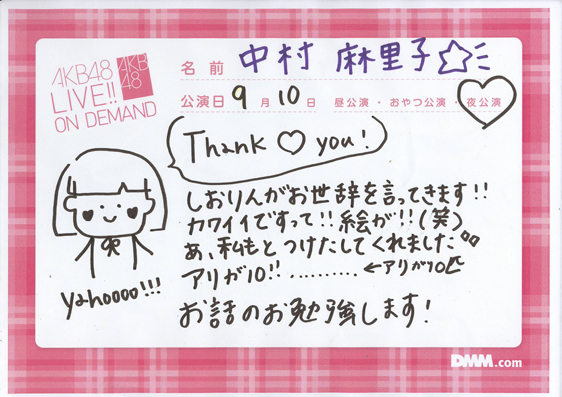 AKB48
LIVE!!
ON DEMAND
AKB
48
名前 中村 麻里子☆
公演日 9月10日 昼公演・おやつ公演・夜公演
Thank ♡ you!
しおりんがお世辞を言ってきます!!
カワイイですって!!絵が!!(笑)
あ、私もとつけたしてくれました。。
アリが10!! ……… ←アリが10匹
yahoooo!!!
お話のお勉強します!
DMM.com